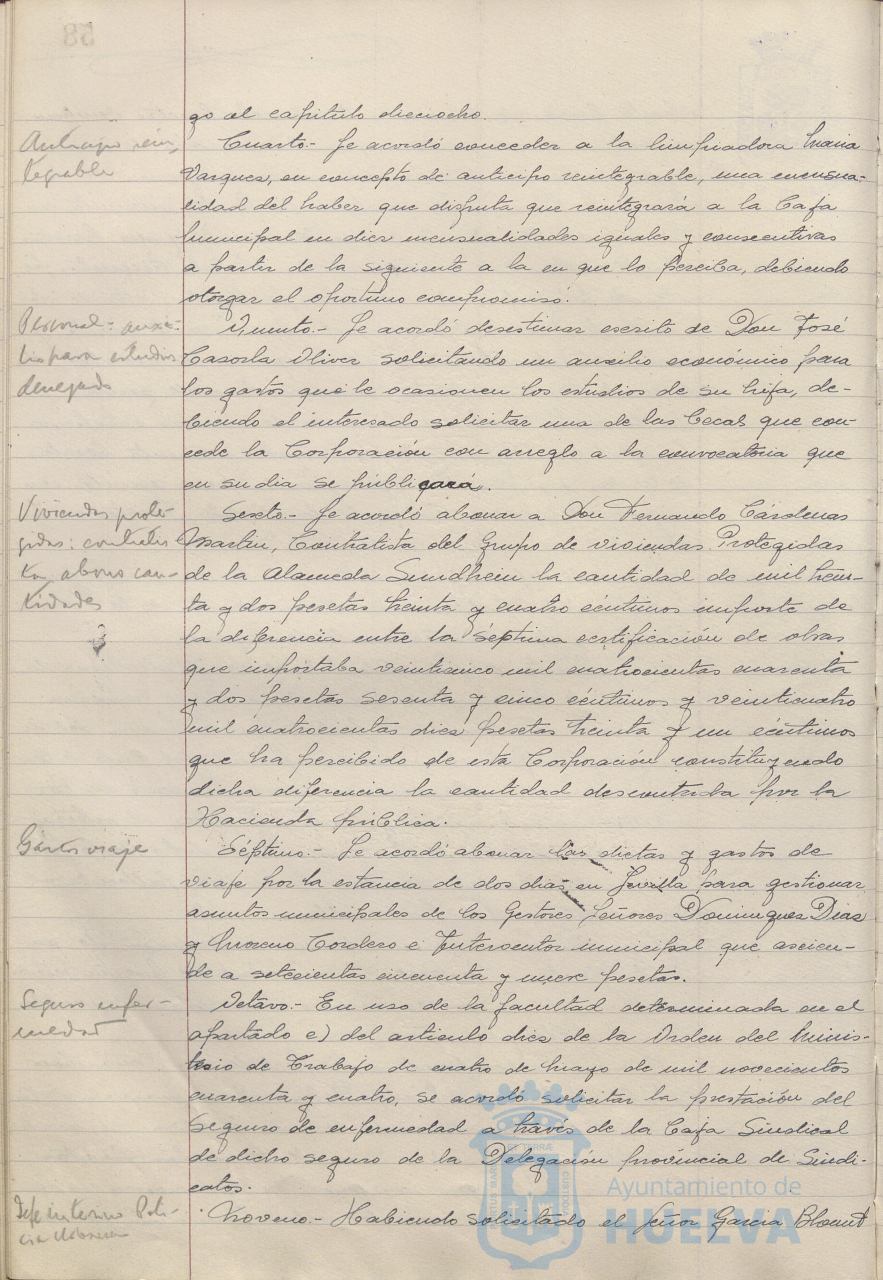 go al capitulo dieciocho.
Anticipo rein-
tegrable
Cuarto.- Se acordó conceder a la limpiadora Maria
Vargues, en concepto de anticipo reintegrable, una mensua-
lidad del haber que disfruta que reintegrará a la Caja
Municipal en diez mensualidades iguales y consecutivas
a partir de la siguiente a la en que lo perciba, debiendo
otorgar el oportuno compromiso.
Personal: auxi-
lio para estudios
denegado
Quinto.- Se acordó desestimar escrito de Don José
Casorla Oliver solicitando un auxilio económico para
los gastos que le ocasionen los estudios de su hija, de-
biendo el interesado solicitar una de las becas que con-
cede la Corporación con arreglo a la convocatoria que
en su dia se publicará.
Viviendas prote-
gidas: contratis-
ta, abono can-
tidades
Sexto.- Se acordó abonar a Don Fernando Cárdenas
Martin, Contratista del Grupo de viviendas Protegidas
de la Alameda Sundhein la cantidad de mil trein-
ta y dos pesetas treinta y cuatro céntimos importe de
la diferencia entre la séptima certificación de obras
que importaba veinticinco mil cuatrocientas cuarenta
y dos pesetas sesenta y cinco céntimos y veinticuatro
mil cuatrocientas diez pesetas treinta y un céntimos
que ha percibido de esta Corporación constituyendo
dicha diferencia la cantidad descontada por la
Hacienda pública.
Gastos viaje
Séptimo.- Se acordó abonar las dietas y gastos de
viaje por la estancia de dos dias en Sevilla para gestionar
asuntos municipales de los Gestores Señores Dominguez Dias
y Moreno Cordero e Interventor municipal que ascien-
de a setecientas cincuenta y nueve pesetas.
Seguro enfer-
medad
Octavo.- En uso de la facultad determinada en el
apartado e) del articulo diez de la Orden del Minis-
terio de Trabajo de cuatro de Mayo de mil novecientos
cuarenta y cuatro, se acordó solicitar la prestación del
Seguro de enfermedad a través de la Caja Sindical
de dicho seguro de la Delegación provincial de Sindi-
catos.
Jefe interino Poli-
cia Urbana
Noveno.- Habiendo solicitado el señor Garcia Blount
Ayuntamiento de
HUELVA